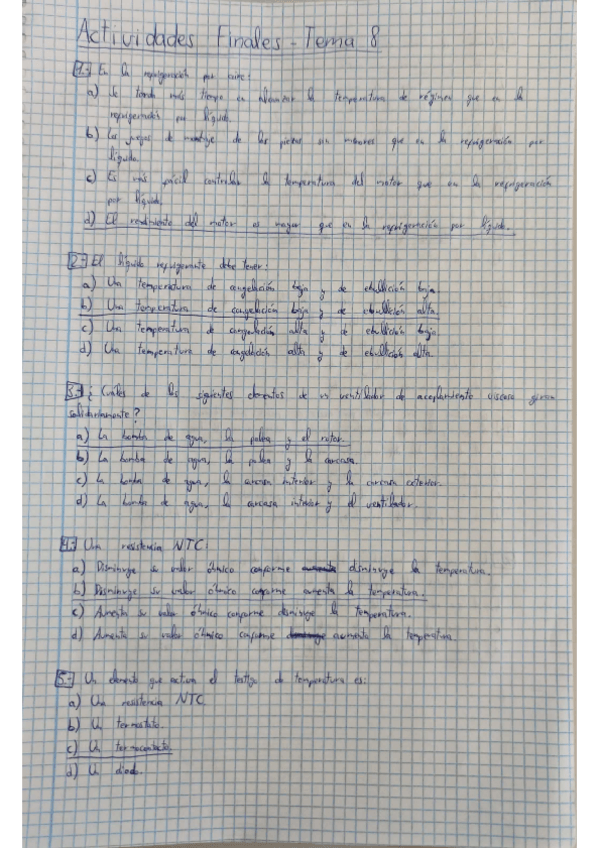 Actividades Finales - Tema 8
1.- En la refrigeración por aire:
a) Se tarda más tiempo en alcanzar la temperatura de régimen que en la
refrigeración por líquido.
b) Los juegos de montaje de las piezas son menores que en la refrigeración por
líquido.
c) Es más fácil controlar la temperatura del motor que en la refrigeración
por líquido.
d) El rendimiento del motor es mayor que en la refrigeración por líquido.
2.- El líquido refrigerante debe tener:
a) Una temperatura de congelación baja y de ebullición baja.
b) Una temperatura de congelación baja y de ebullición alta.
c) Una temperatura de congelación alta y de ebullición baja.
d) Una temperatura de congelación alta y de ebullición alta.
3.- ¿Cuáles de los siguientes elementos de un ventilador de acoplamiento viscoso giran
solidariamente?
a) La bomba de agua, la polea y el rotor.
b) La bomba de agua, la polea y la carcasa.
c) La bomba de agua, la carcasa interior y la carcasa exterior.
d) La bomba de agua, la carcasa interior y el ventilador.
4.- Una resistencia NTC:
a) Disminuye su valor óhmico conforme disminuye la temperatura.
b) Disminuye su valor óhmico conforme aumenta la temperatura.
c) Aumenta su valor óhmico conforme disminuye la temperatura.
d) Aumenta su valor óhmico conforme aumenta la temperatura.
5.- Un elemento que activa el testigo de temperatura es:
a) Una resistencia NTC
b) Un termostato.
c) Un termocontacto.
d) Un diodo.